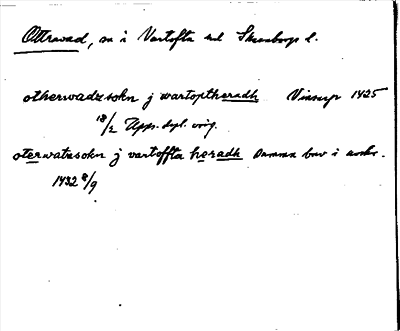 Ottravad, sn i Vartofta hd Skarabogs l.
otherwadzsokn j wartoptheradh Vinsarp 1425
18/2 Upps. dpl. orig.
oterwatzsokn j vartoffta heradh Samma brev i avskr.
1432 8/9